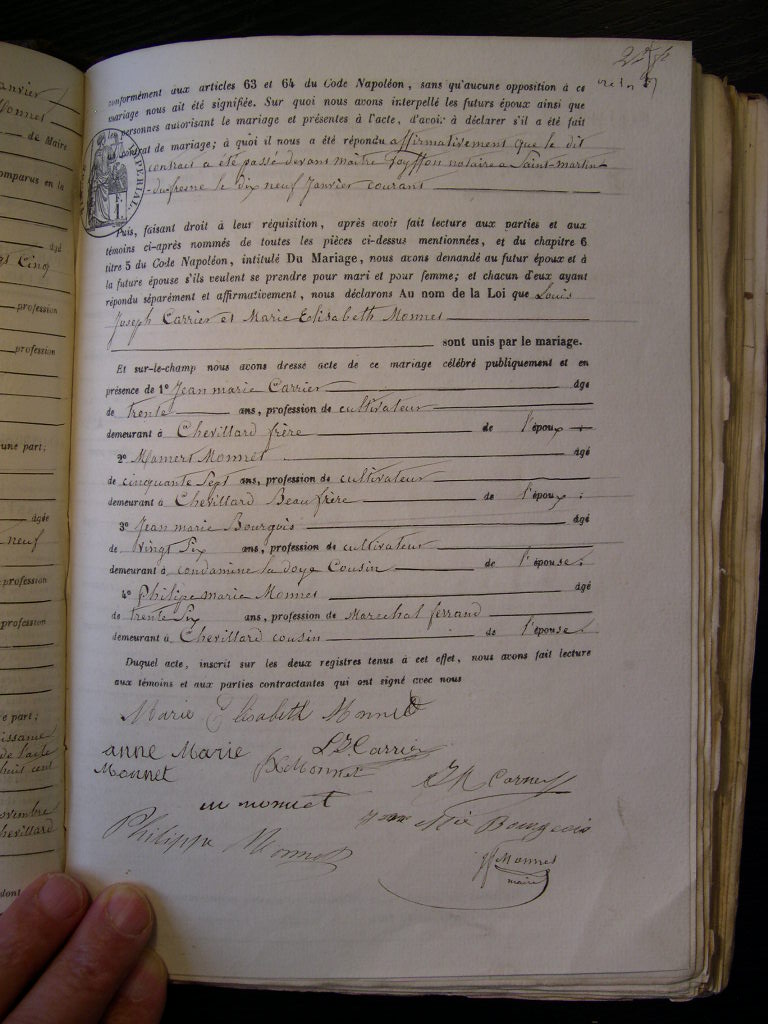 conformément aux articles 63 et 64 du Code Napoléon, sans qu'aucune opposition à ce
mariage nous ait été signifiée. Sur quoi nous avons interpellé les futurs époux ainsi que
les personnes autorisant le mariage et présentes à l'acte, d'avoir à déclarer s'il a été fait
contrat de mariage; à quoi il nous a été répondu affirmativement que le dit
contrat a été passé devant maître notaire a Saint-martin-
-du-fresne le dix neuf Janvier courant
Puis, faisant droit à leur réquisition, après avoir fait lecture aux parties et aux
témoins ci-après nommés de toutes les pièces ci-dessus mentionnées, et du chapitre 6
titre 5 du Code Napoléon, intitulé Du Mariage, nous avons demandé au futur époux et à
la future épouse s'ils veulent se prendre pour mari et pour femme; et chacun d'eux ayant
répondu séparément et affirmativement, nous déclarons Au nom de la Loi que Louis
Joseph Carrier et Marie Elisabeth Monnet
sont unis par le mariage.
Et sur-le-champ nous avons dressé acte de ce mariage célébré publiquement et en
présence de 1° Jean marie Carrier âgé
de trente ans, profession de cultivateur
demeurant à Chevillard frère de l'époux
2° Mamert Monnet âgé
de cinquante Sept ans, profession de cultivateur
demeurant à Chevillard Beau frère de l'époux ;
3° Jean marie Bourgeois âgé
de Vingt Six ans, profession de cultivateur
demeurant à condamine la doye Cousin de l'épouse.
4° Philipe marie Monnet âgé
de trente Six ans, profession de Marechal ferrand
demeurant à Chevillard cousin de l'épouse.
Duquel acte, inscrit sur les deux registres tenus à cet effet, nous avons fait lecture
aux témoins et aux parties contractantes qui ont signé avec nous
Marie Elisabeth Monnet
anne Marie L J Carrier
Monnet Monnet
monnet
Bourgeois
Philippe Monnet
Monnet
maire